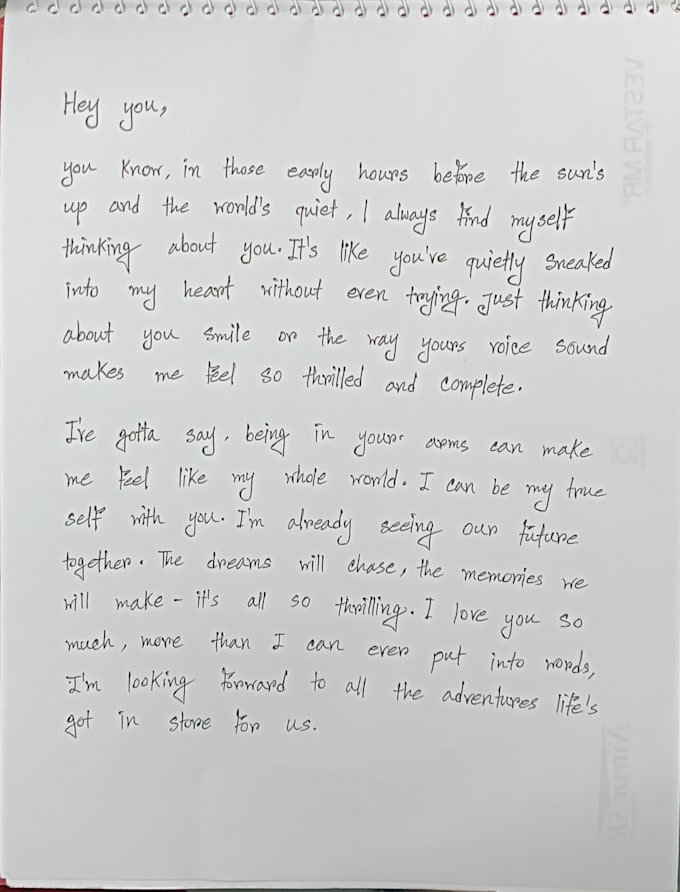 Hey you,
you know, in those early hours before the sun's
up and the world's quiet, I always find myself
thinking about you. It's like you've quietly sneaked
into my heart without even trying. Just thinking
about you smile or the way yours voice sound
makes me feel so thrilled and complete.
I've gotta say, being in your arms can make
me feel like my whole world. I can be my true
self with you. I'm already seeing our future
together. The dreams will chase, the memories we
will make - it's all so thrilling. I love you so
much, more than I can ever put into words,
I'm looking forward to all the adventures life's
got in store for us.